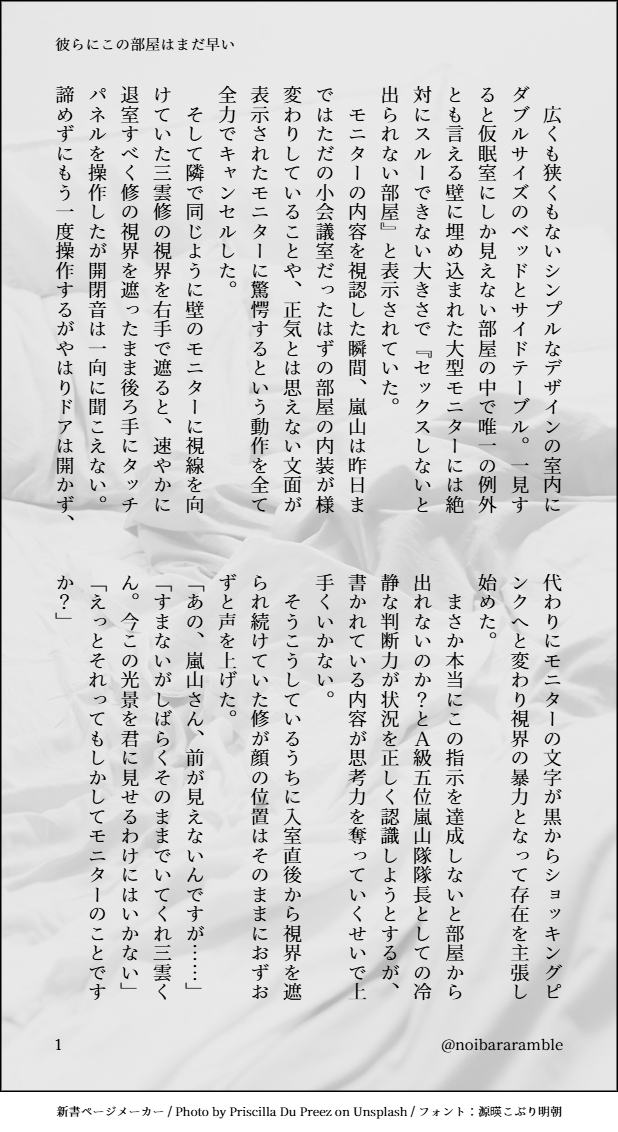 彼らにこの部屋はまだ早い
　広くも狭くもないシンプルなデザインの室内に
ダブルサイズのベッドとサイドテーブル。一見す
ると仮眠室にしか見えない部屋の中で唯一の例外
とも言える壁に埋め込まれた大型モニターには絶
対にスルーできない大きさで『セックスしないと
出られない部屋』と表示されていた。
　モニターの内容を視認した瞬間、嵐山は昨日ま
ではただの小会議室だったはずの部屋の内装が様
変わりしていることや、正気とは思えない文面が
表示されたモニターに驚愕するという動作を全て
全力でキャンセルした。
　そして隣で同じように壁のモニターに視線を向
けていた三雲修の視界を右手で遮ると、速やかに
退室すべく修の視界を遮ったまま後ろ手にタッチ
パネルを操作したが開閉音は一向に聞こえない。
諦めずにもう一度操作するがやはりドアは開かず、
代わりにモニターの文字が黒からショッキングピ
ンクへと変わり視界の暴力となって存在を主張し
始めた。
　まさか本当にこの指示を達成しないと部屋から
出れないのか？とA級五位嵐山隊隊長としての冷
静な判断力が状況を正しく認識しようとするが、
書かれている内容が思考力を奪っていくせいで上
手くいかない。
　そうこうしているうちに入室直後から視界を遮
られ続けていた修が顔の位置はそのままにおずお
ずと声を上げた。
「あの、嵐山さん、前が見えないんですが……」
「すまないがしばらくそのままでいてくれ三雲く
ん。今この光景を君に見せるわけにはいかない」
「えっとそれってもしかしてモニターのことです
か？」
1
@noibararamble
新書ページメーカー / Photo by Priscilla Du Preez on Unsplash / フォント：源暎こぶり明朝